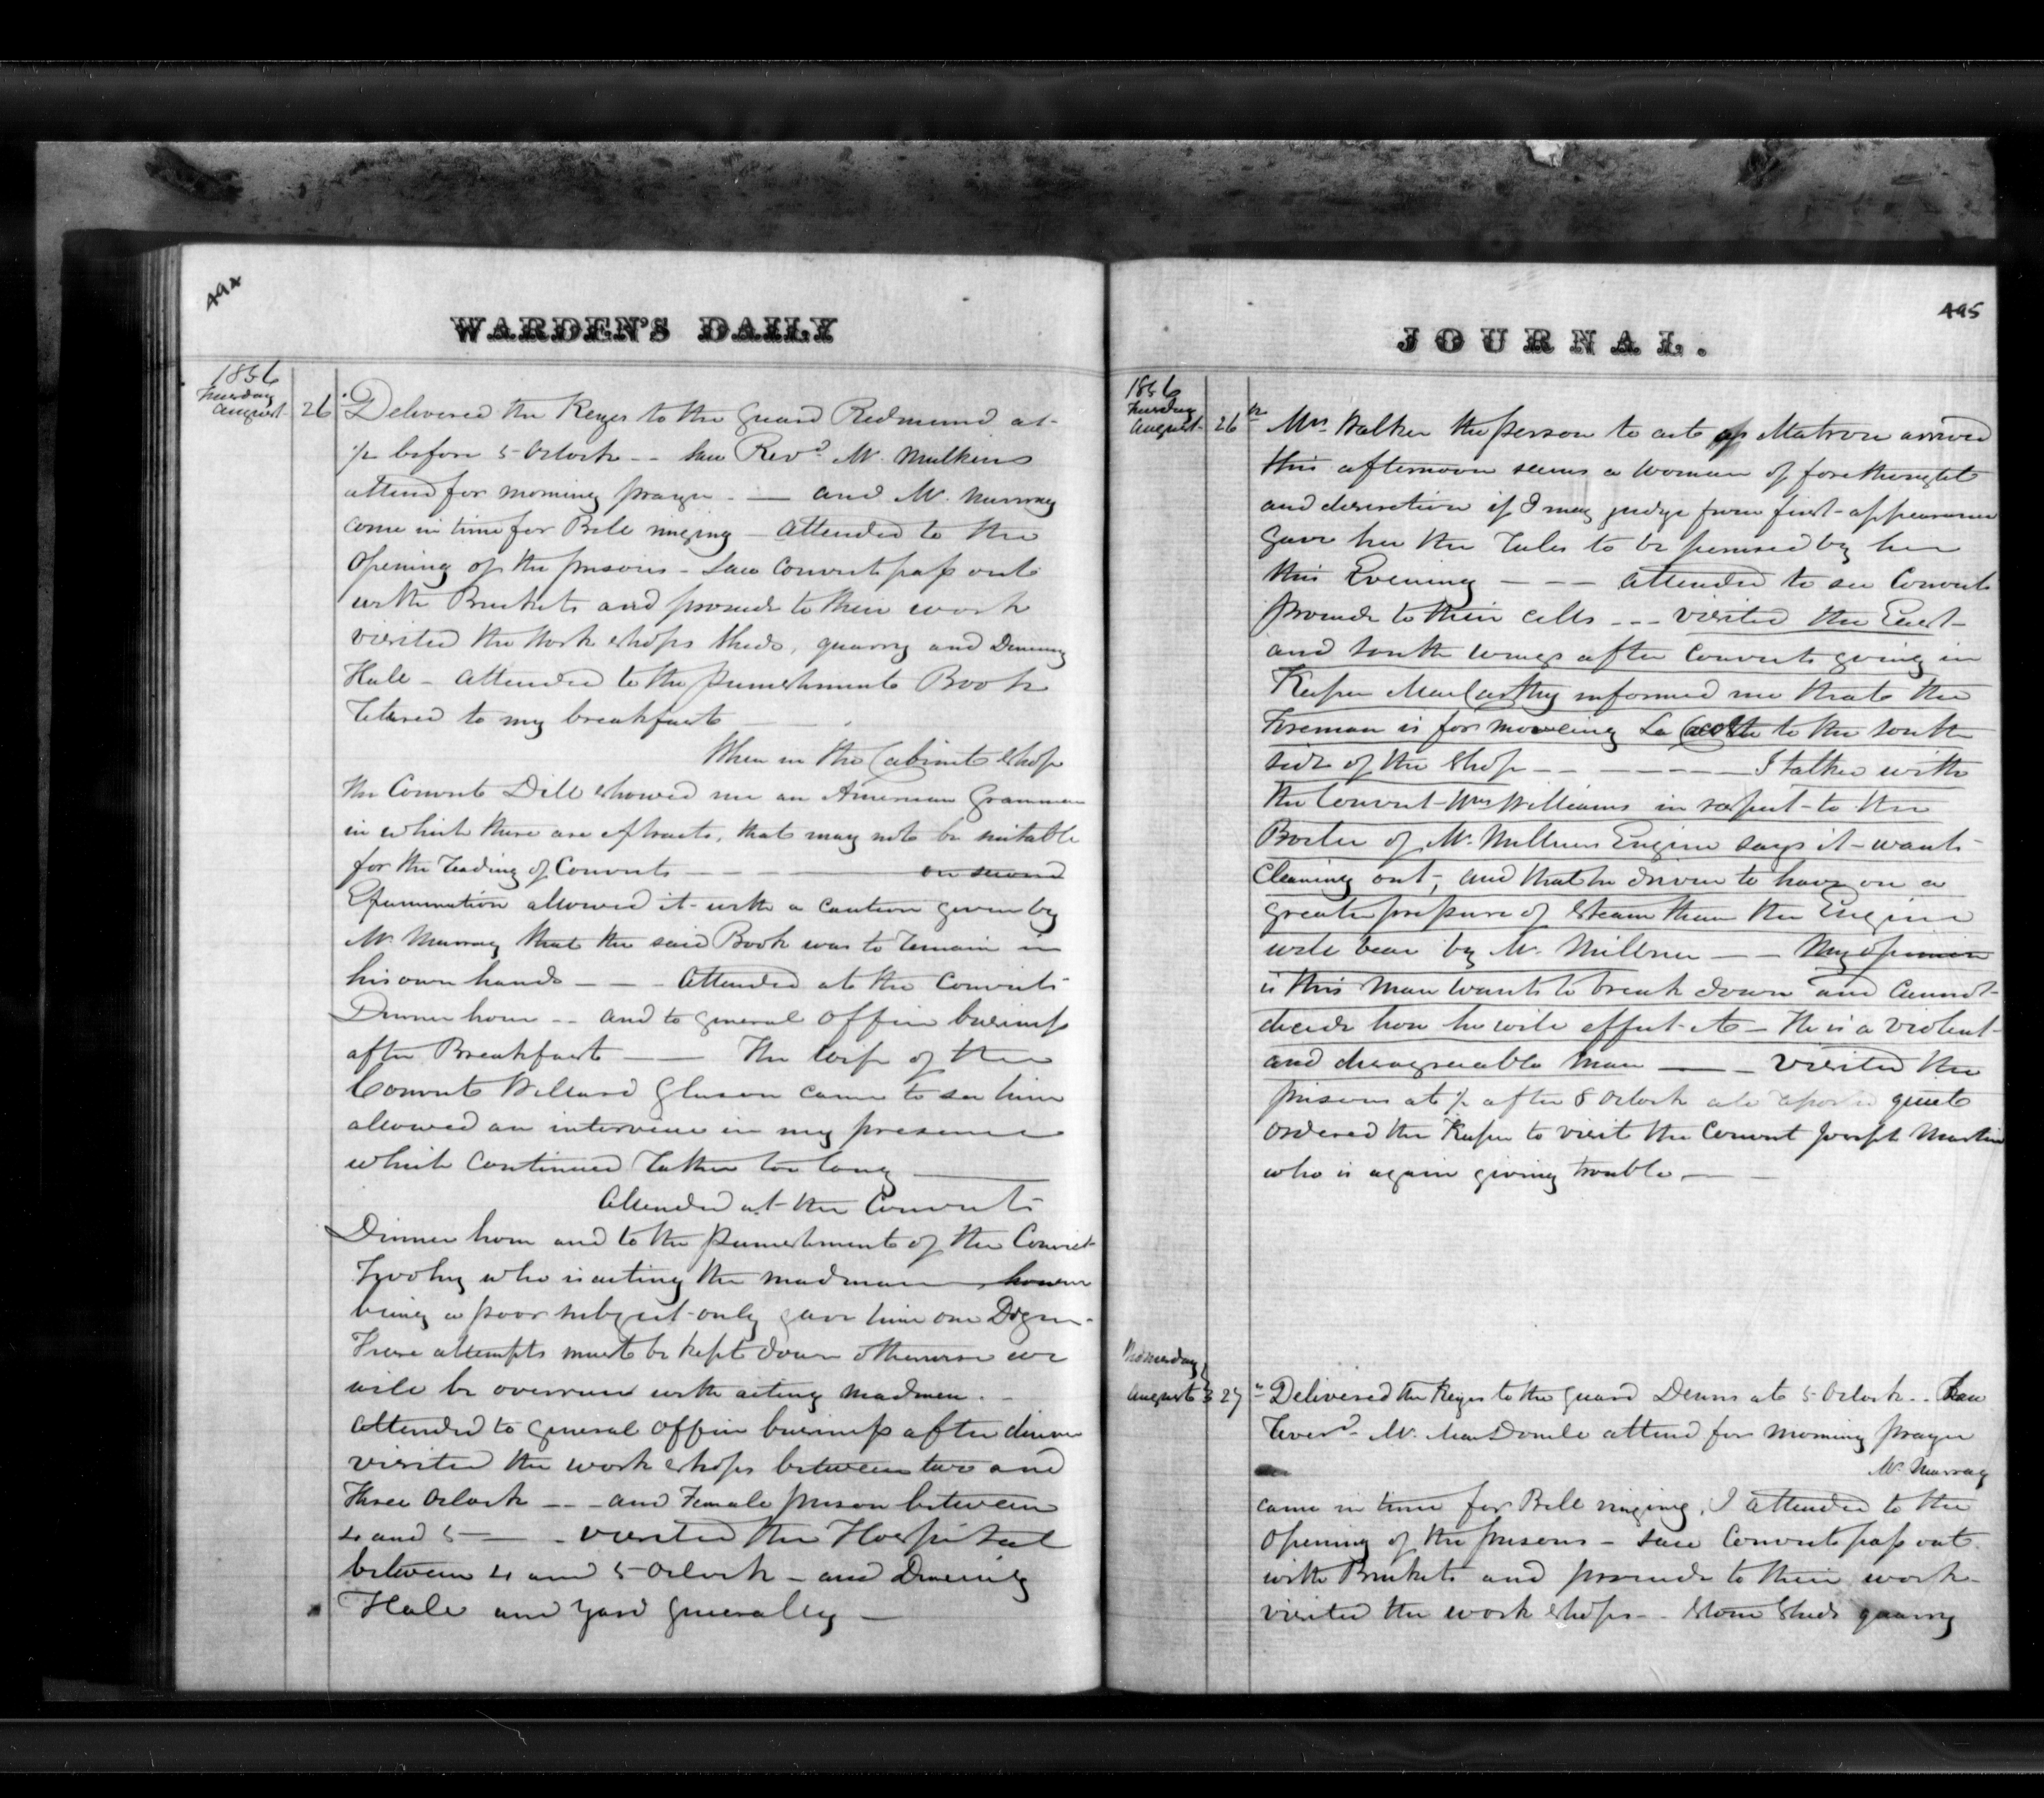 494
WARDEN'S DAILY
1856
Tuesday
August 26
Delivered the Keyes to the guard Redmond at
½ before 5 Oclock -- saw Revd. Mr. Mulkins
attend for morning prayer -- and Mr. Murray
come in time for Bell ringing - attended to the
opening of the prisons - saw Convict pass out
with Buckets and proceede to their work
visited the Work shops sheds, quarry and Dinning
Hall - attended to the punishment Book
retired to my breakfast
When in the Cabinet shop
the Convict Dill showed me an American Grammar
in which there are extracts, that may not be suitable
for the reading of Convicts - - - - on second
Examination allowed it with a caution given by
Mr. Murray that the said Book was to remain in
his own hands - - - attended at the Convicts
Dinner hour -- and to general office business
after Breakfast -- The Wife of the
Convict Willard Gleason came to see him
allowed an interview in my presence
which continued rather too long
attended at the Convicts
Dinner hour and to the punishment of the Convict
who is acting the madman however
being a poor subject only gave him one Dozn
These attempts must be kept down otherwise we
will be overrun with acting madmen. -
attended to general office business after dinner
visited the work shops between two and
three Oclock -- and Female prison between
4 and 5 -- visited the Hospital
between 4 and 5 Oclock - and Dinning
Hall and yard generally -
JOURNAL.
495
1856
Tuesday
August 26
Mrs. Walker the person to act as Matron arrived
this afternoon seems a woman of forethought
and discretion if I may judge from first appearance
gave her the rules to be perused by her
this Evening - - - attended to see Convicts
proceede to their cells --- visited the East
and South wings after Convicts going in
Keeper MacCarthy informed me that the
Foreman is for moveing La Cotte to the south
side of the shop - - - - I talked with
the Convict Wm Williams in respect to the
Boiler of Mr. Millners Engine says it wants
cleaning out, and that he driven to have on a
greater pressure of steam than the Engine
will bear by Mr. Millner -- My opinion
is this man wants to break down and cannot
decide how he will effect it - He is a violent
and disagreeable man -- visited the
prisons at ½ after 8 Oclock all quiet
ordered the Keeper to visit the Convict Joseph Martin
who is again giving trouble. -
Wednesday
August 27
Delivered the Keyes to the guard Dennis at 5 Oclock .. Saw
Reverd. Mr. MacDonell attend for morning prayer
Mr. Murray
came in time for Bell ringing, I attended to the
opening of the prisons - saw Convict pass out
with Buckets and proceede to their work
visited the work shops -- stone sheds quarry